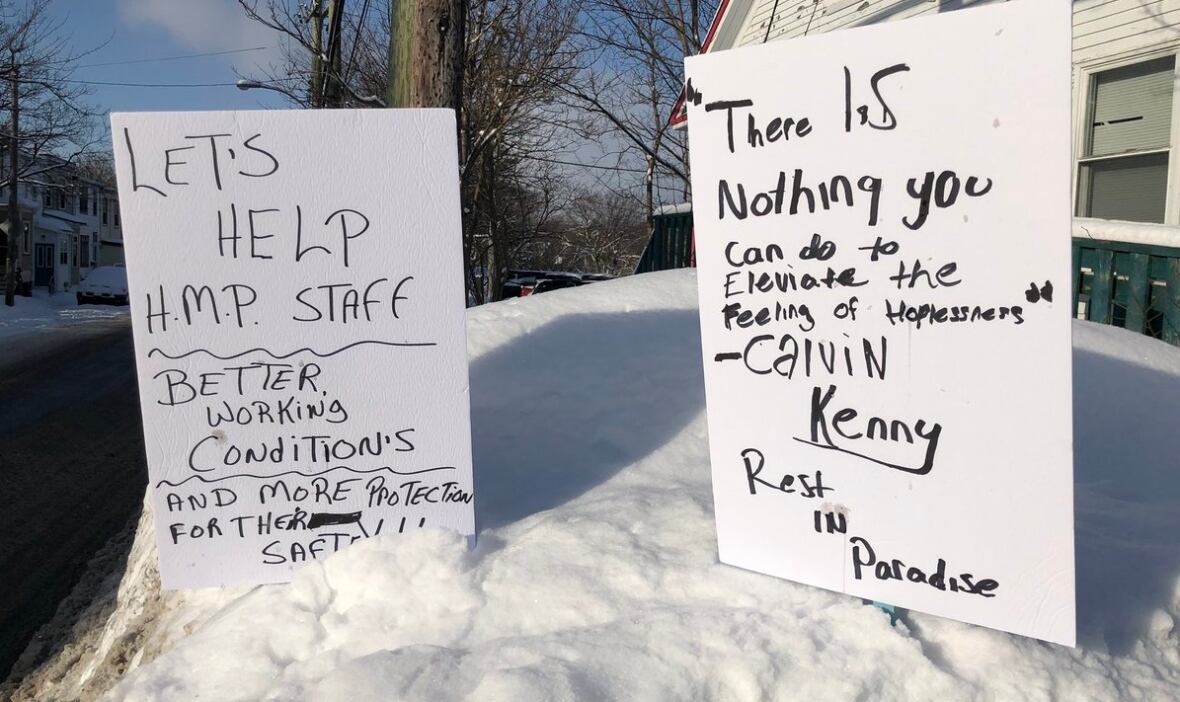 LET'S
HELP
H.M.P. STAFF
BETTER.
WORKING
CONDITION'S
AND MORE PROTECTION
FOR THER
SAFTEY!!!
"There IS
Nothing you
can do to
Eleviate the
Feeling of Hoplessness"
-CalviN
Kenny
Rest
IN
Paradise